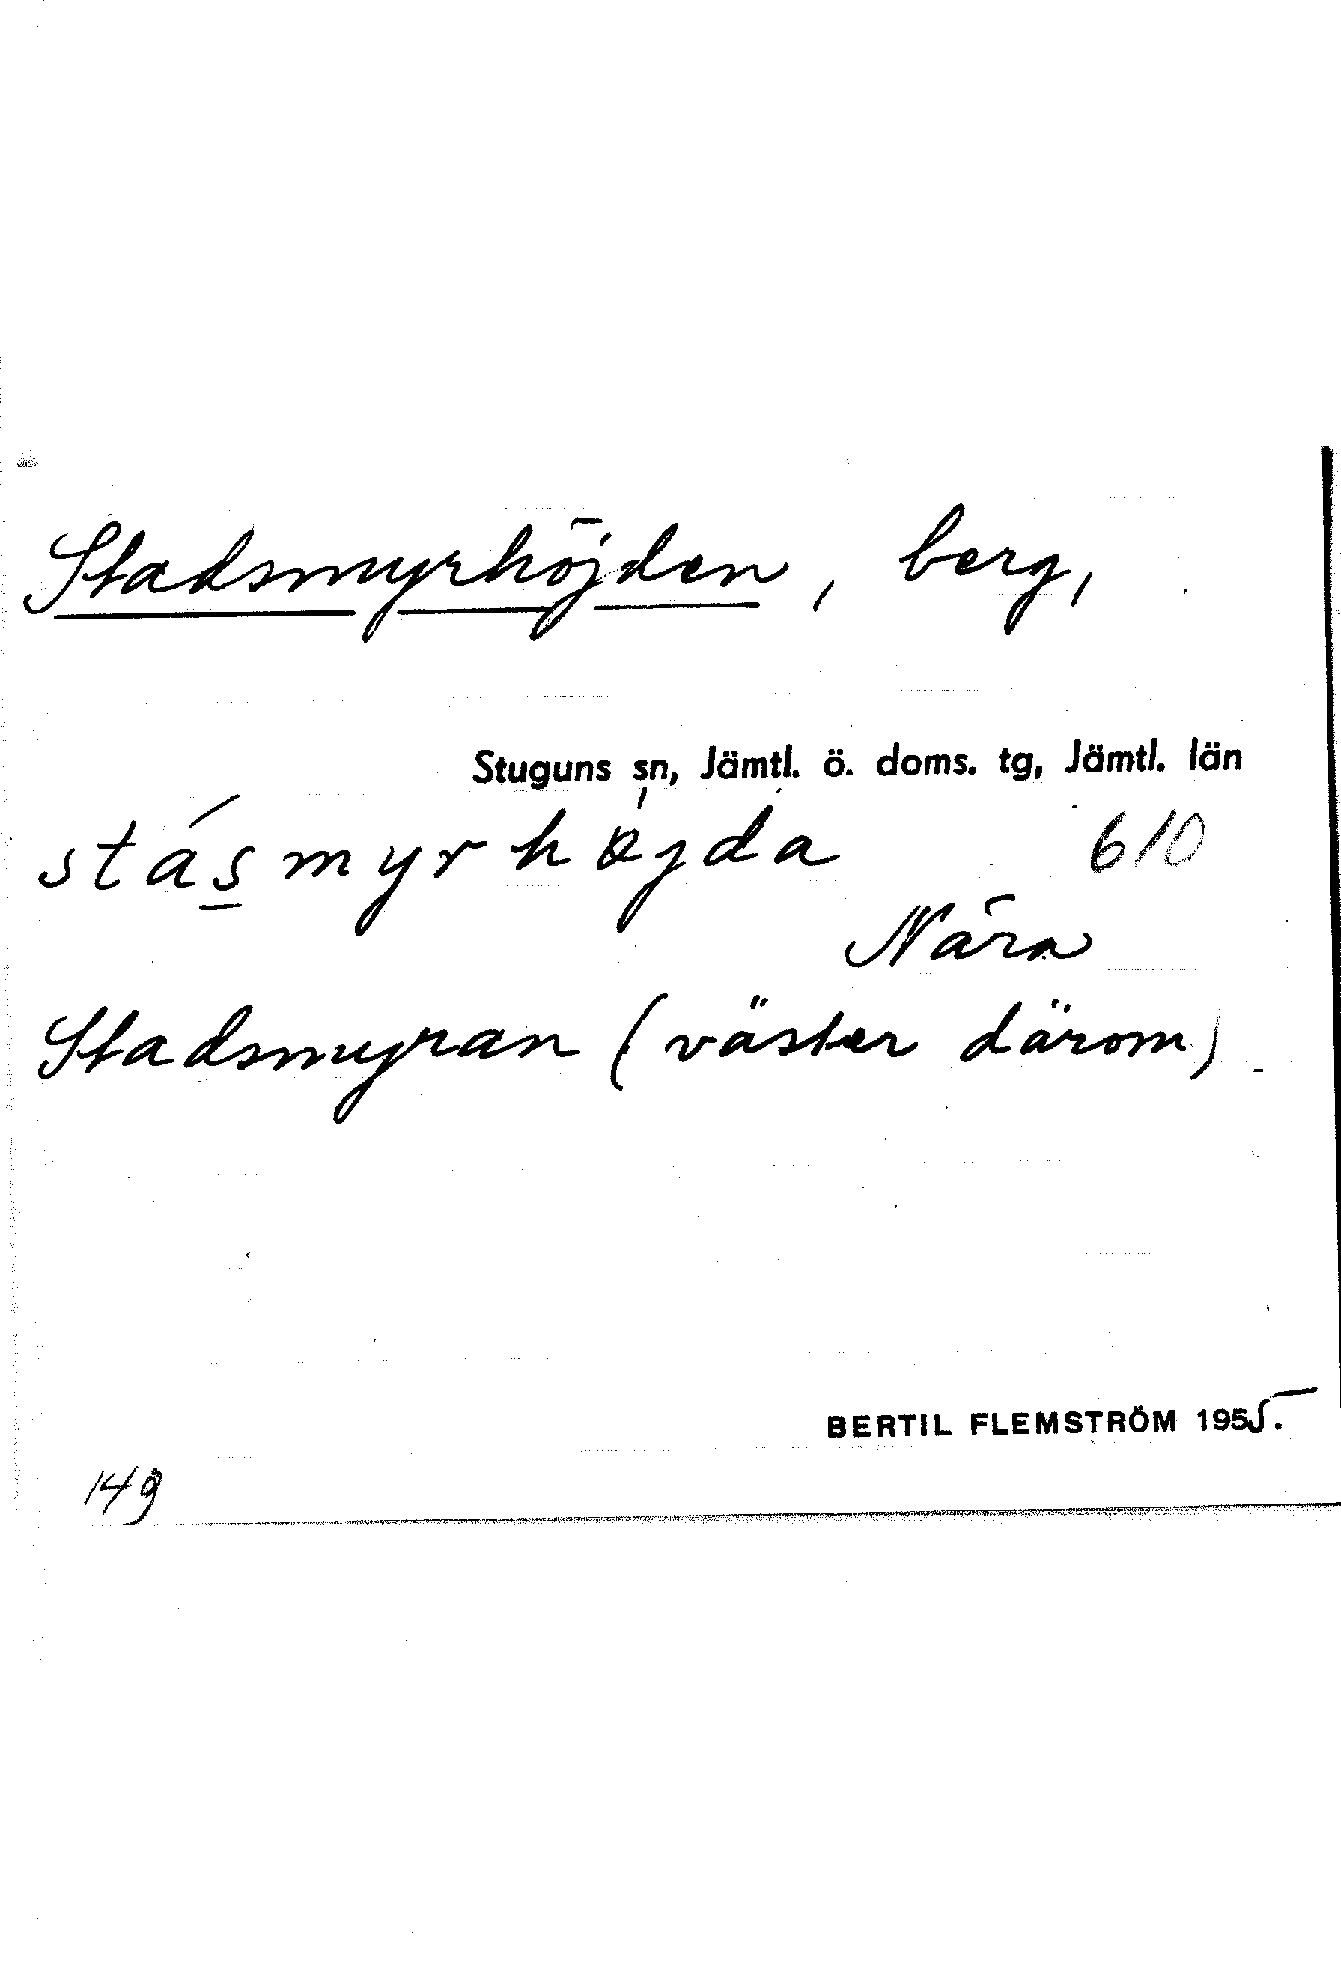 Stadsmyrhöjden, berg,
Stuguns sn, Jämtl. ö. doms. tg, Jämtl. län
stásmyrhøjda 610
Nära
Stadsmyran (väster därom).
BERTIL FLEMSTRÖM 1955.
149